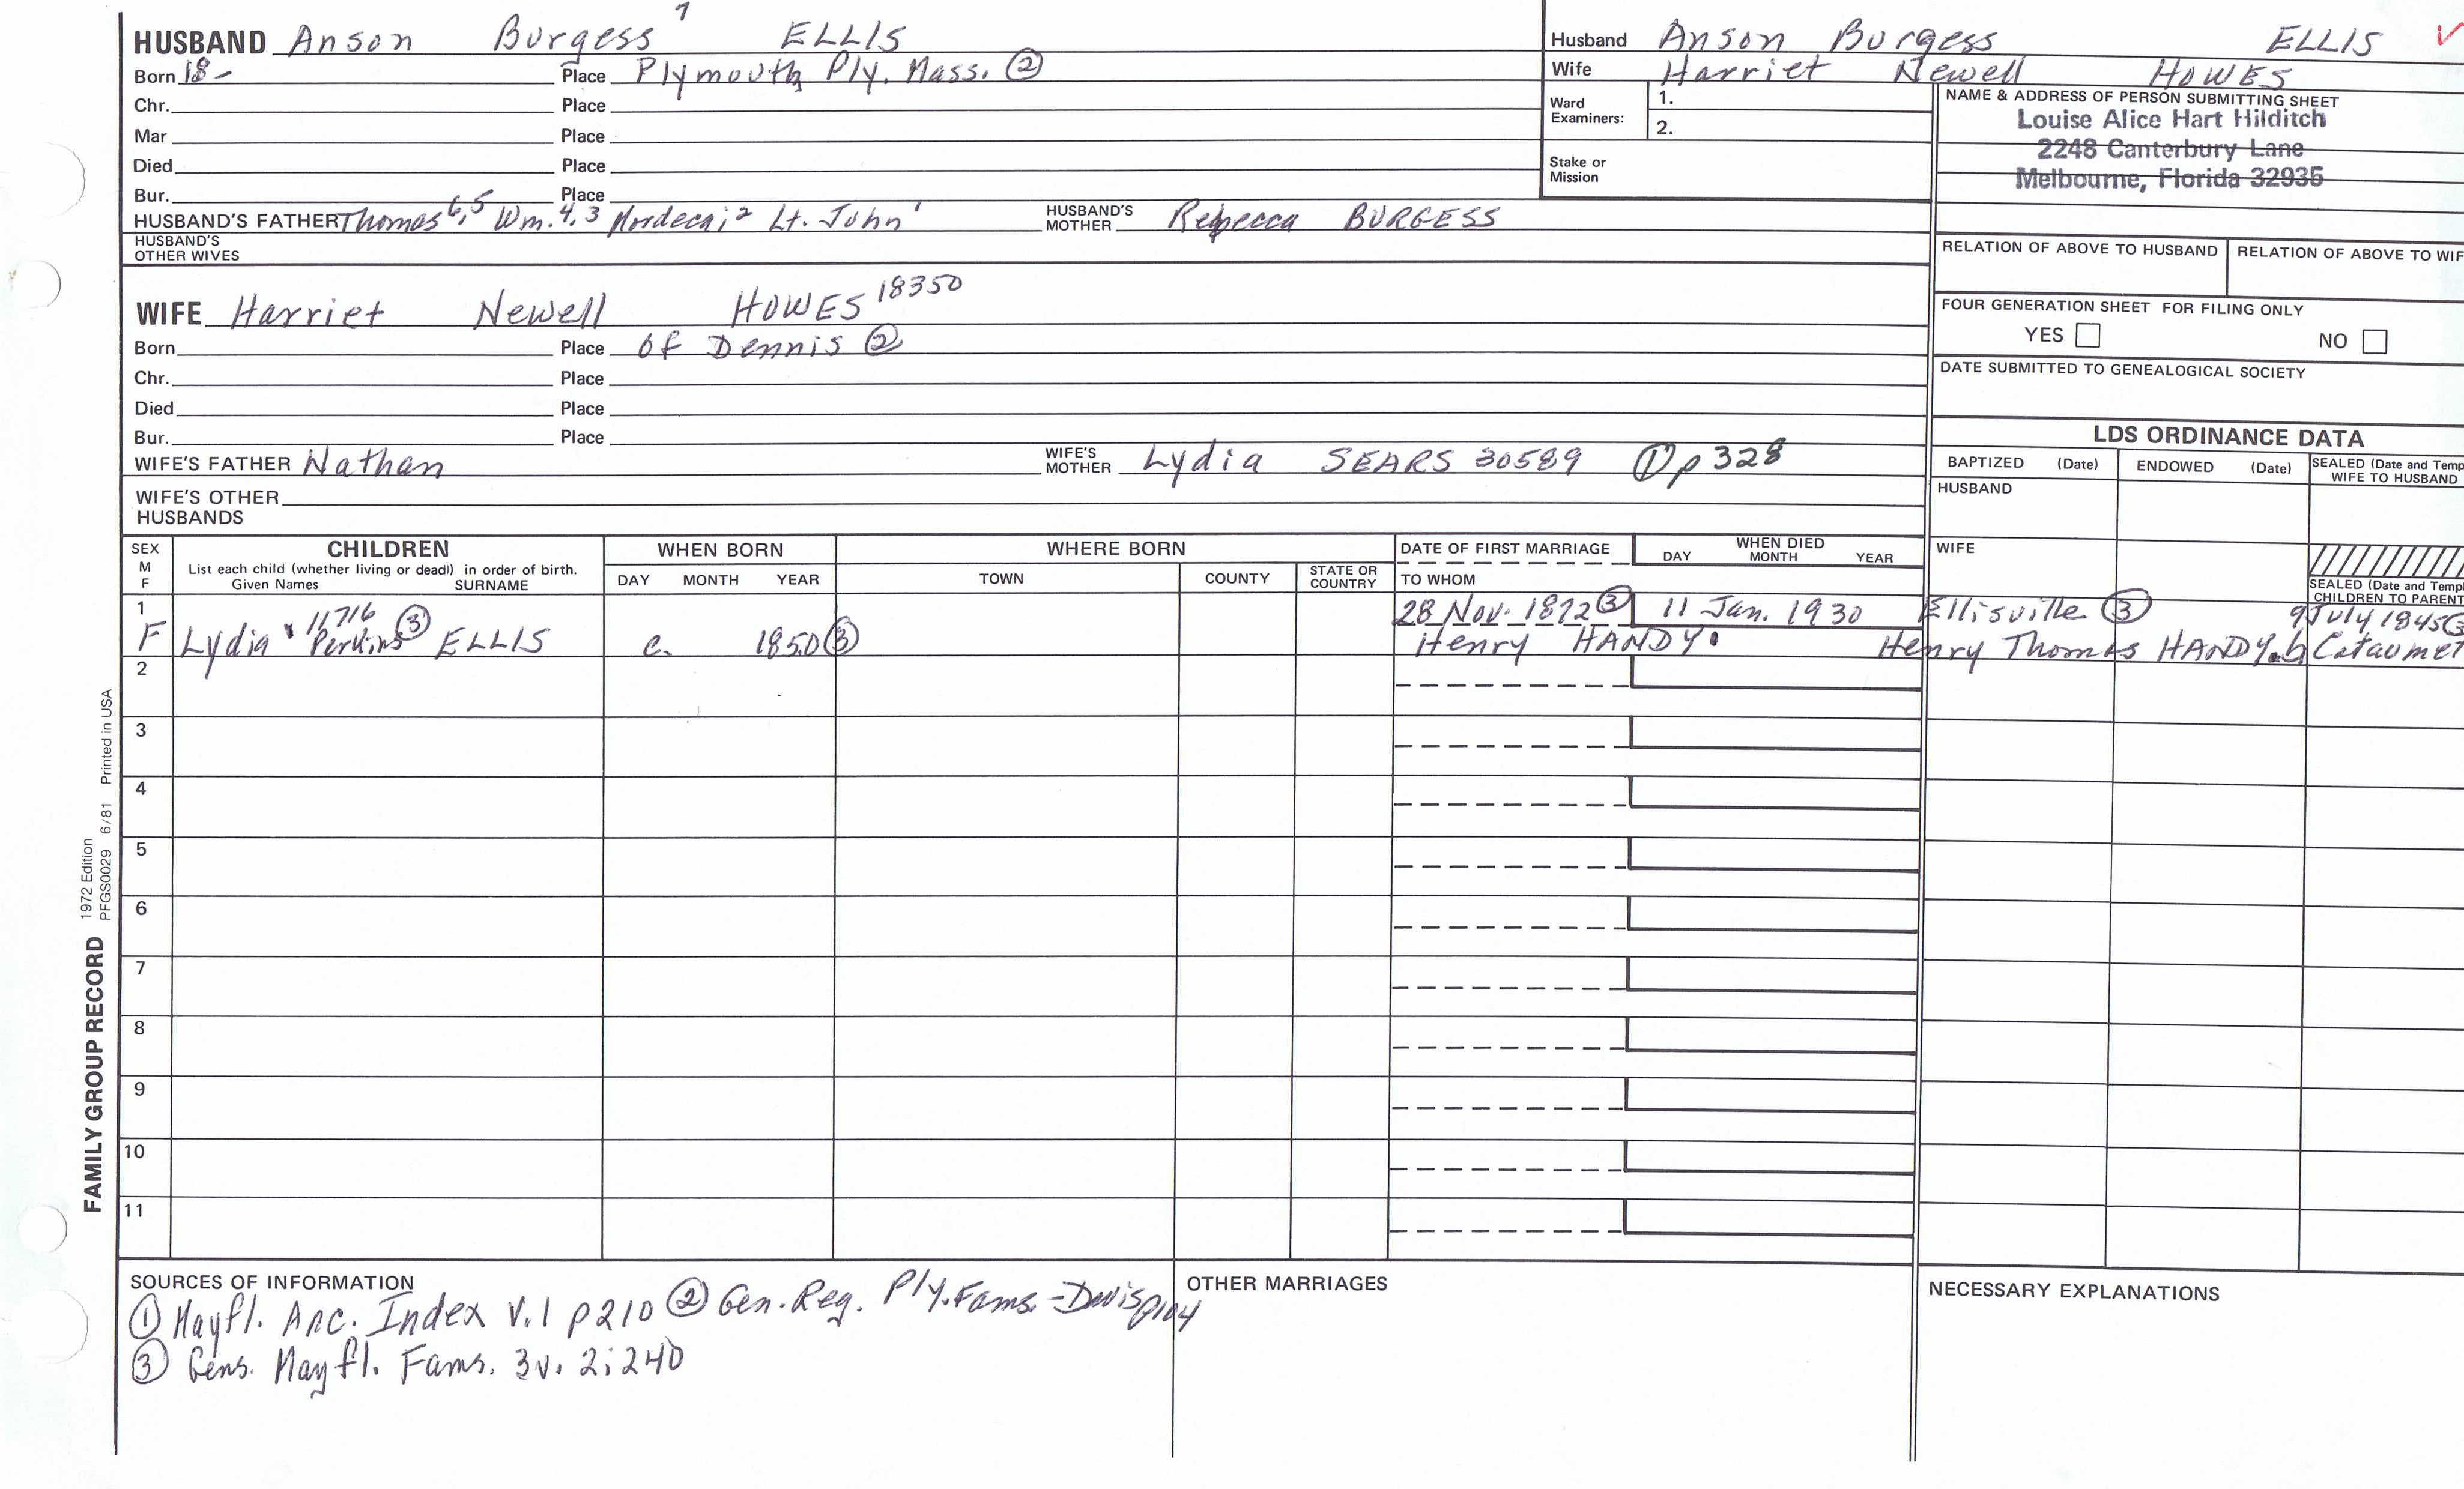 HUSBAND Anson Burgess 7 ELLIS
Born 18- Place Plymouth, Ply. Mass. ②
Chr. Place
Mar Place
Died Place
Bur. Place
HUSBAND'S FATHER Thomas 6,5 Wm. 4,3 Mordecai 2 Lt. John 1 HUSBAND'S MOTHER Rebecca BURGESS
HUSBAND'S OTHER WIVES
WIFE Harriet Newell HOWES 18350
Born Place of Dennis ②
Chr. Place
Died Place
Bur. Place
WIFE'S FATHER Nathan WIFE'S MOTHER Lydia SEARS 30589 ① p 328
WIFE'S OTHER HUSBANDS
Husband Anson Burgess ELLIS ✓
Wife Harriet Newell HOWES
Ward Examiners: 1.
2.
Stake or Mission
NAME & ADDRESS OF PERSON SUBMITTING SHEET
Louise Alice Hart Hilditch
2248 Canterbury Lane
Melbourne, Florida 32935
RELATION OF ABOVE TO HUSBAND RELATION OF ABOVE TO WIF
FOUR GENERATION SHEET FOR FILING ONLY
YES NO
DATE SUBMITTED TO GENEALOGICAL SOCIETY
LDS ORDINANCE DATA
BAPTIZED (Date) ENDOWED (Date) SEALED (Date and Temp
WIFE TO HUSBAND
HUSBAND
WIFE
SEALED (Date and Temp
CHILDREN TO PARENT
SEX M F
CHILDREN
List each child (whether living or dead) in order of birth.
Given Names SURNAME
WHEN BORN
DAY MONTH YEAR
WHERE BORN
TOWN COUNTY STATE OR COUNTRY
DATE OF FIRST MARRIAGE
TO WHOM
WHEN DIED
DAY MONTH YEAR
1 11716 28 Nov. 1872 ③ 11 Jan. 1930 Ellisville ③ 9 July 1845 ③
F Lydia Perkins ③ ELLIS c. 1850 ③ Henry HANDY. Henry Thomas HANDY. b Cataumet
2
3
4
5
6
7
8
9
10
11
SOURCES OF INFORMATION
① Mayfl. Anc. Index V.1 p210 ② Gen. Reg. Ply. Fams. - Davis p104
③ Gens. Mayfl. Fams. 3v. 2:240
OTHER MARRIAGES
NECESSARY EXPLANATIONS
FAMILY GROUP RECORD
1972 Edition
PFGS0029 6/81 Printed in USA